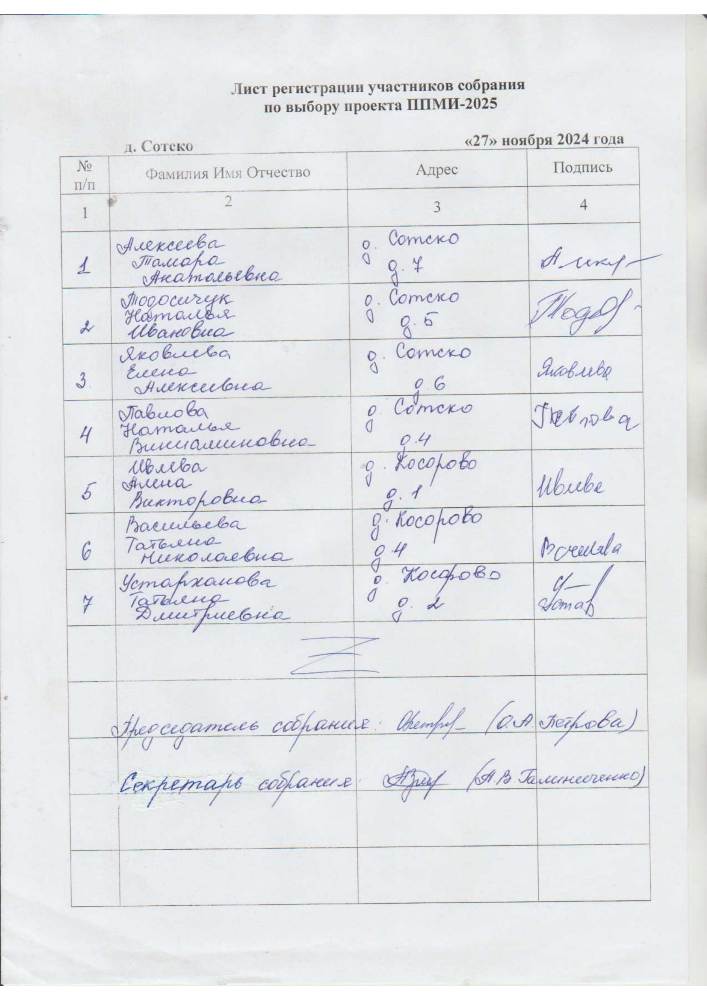 Лист регистрации участников собрания
по выбору проекта ППМИ-2025
д. Сотско «27» ноября 2024 года
№ п/п Фамилия Имя Отчество Адрес Подпись
1 2 3 4
Алексеева д. Сотско
1 Тамара д. 7
Анатольевна
Тодосичук д. Сотско
2 Наталья д. 5
Ивановна
Яковлева д. Сотско Яковлева
3 Елена д 6
Алексеевна
Павлова д. Сотско Павлова
4 Наталья д. 4
Виниаминовна
Ивлева д. Косорово Ивлева
5 Алена д. 1
Викторовна
Васильева д. Косорово
6 Татьяна д 4
Николаевна
Устарханова д. Косорово
7 Татьяна д. 2
Дмитриевна
Председатель собрания: (О.А. Петрова)
Секретарь собрания: (А.В. Галиниченко)